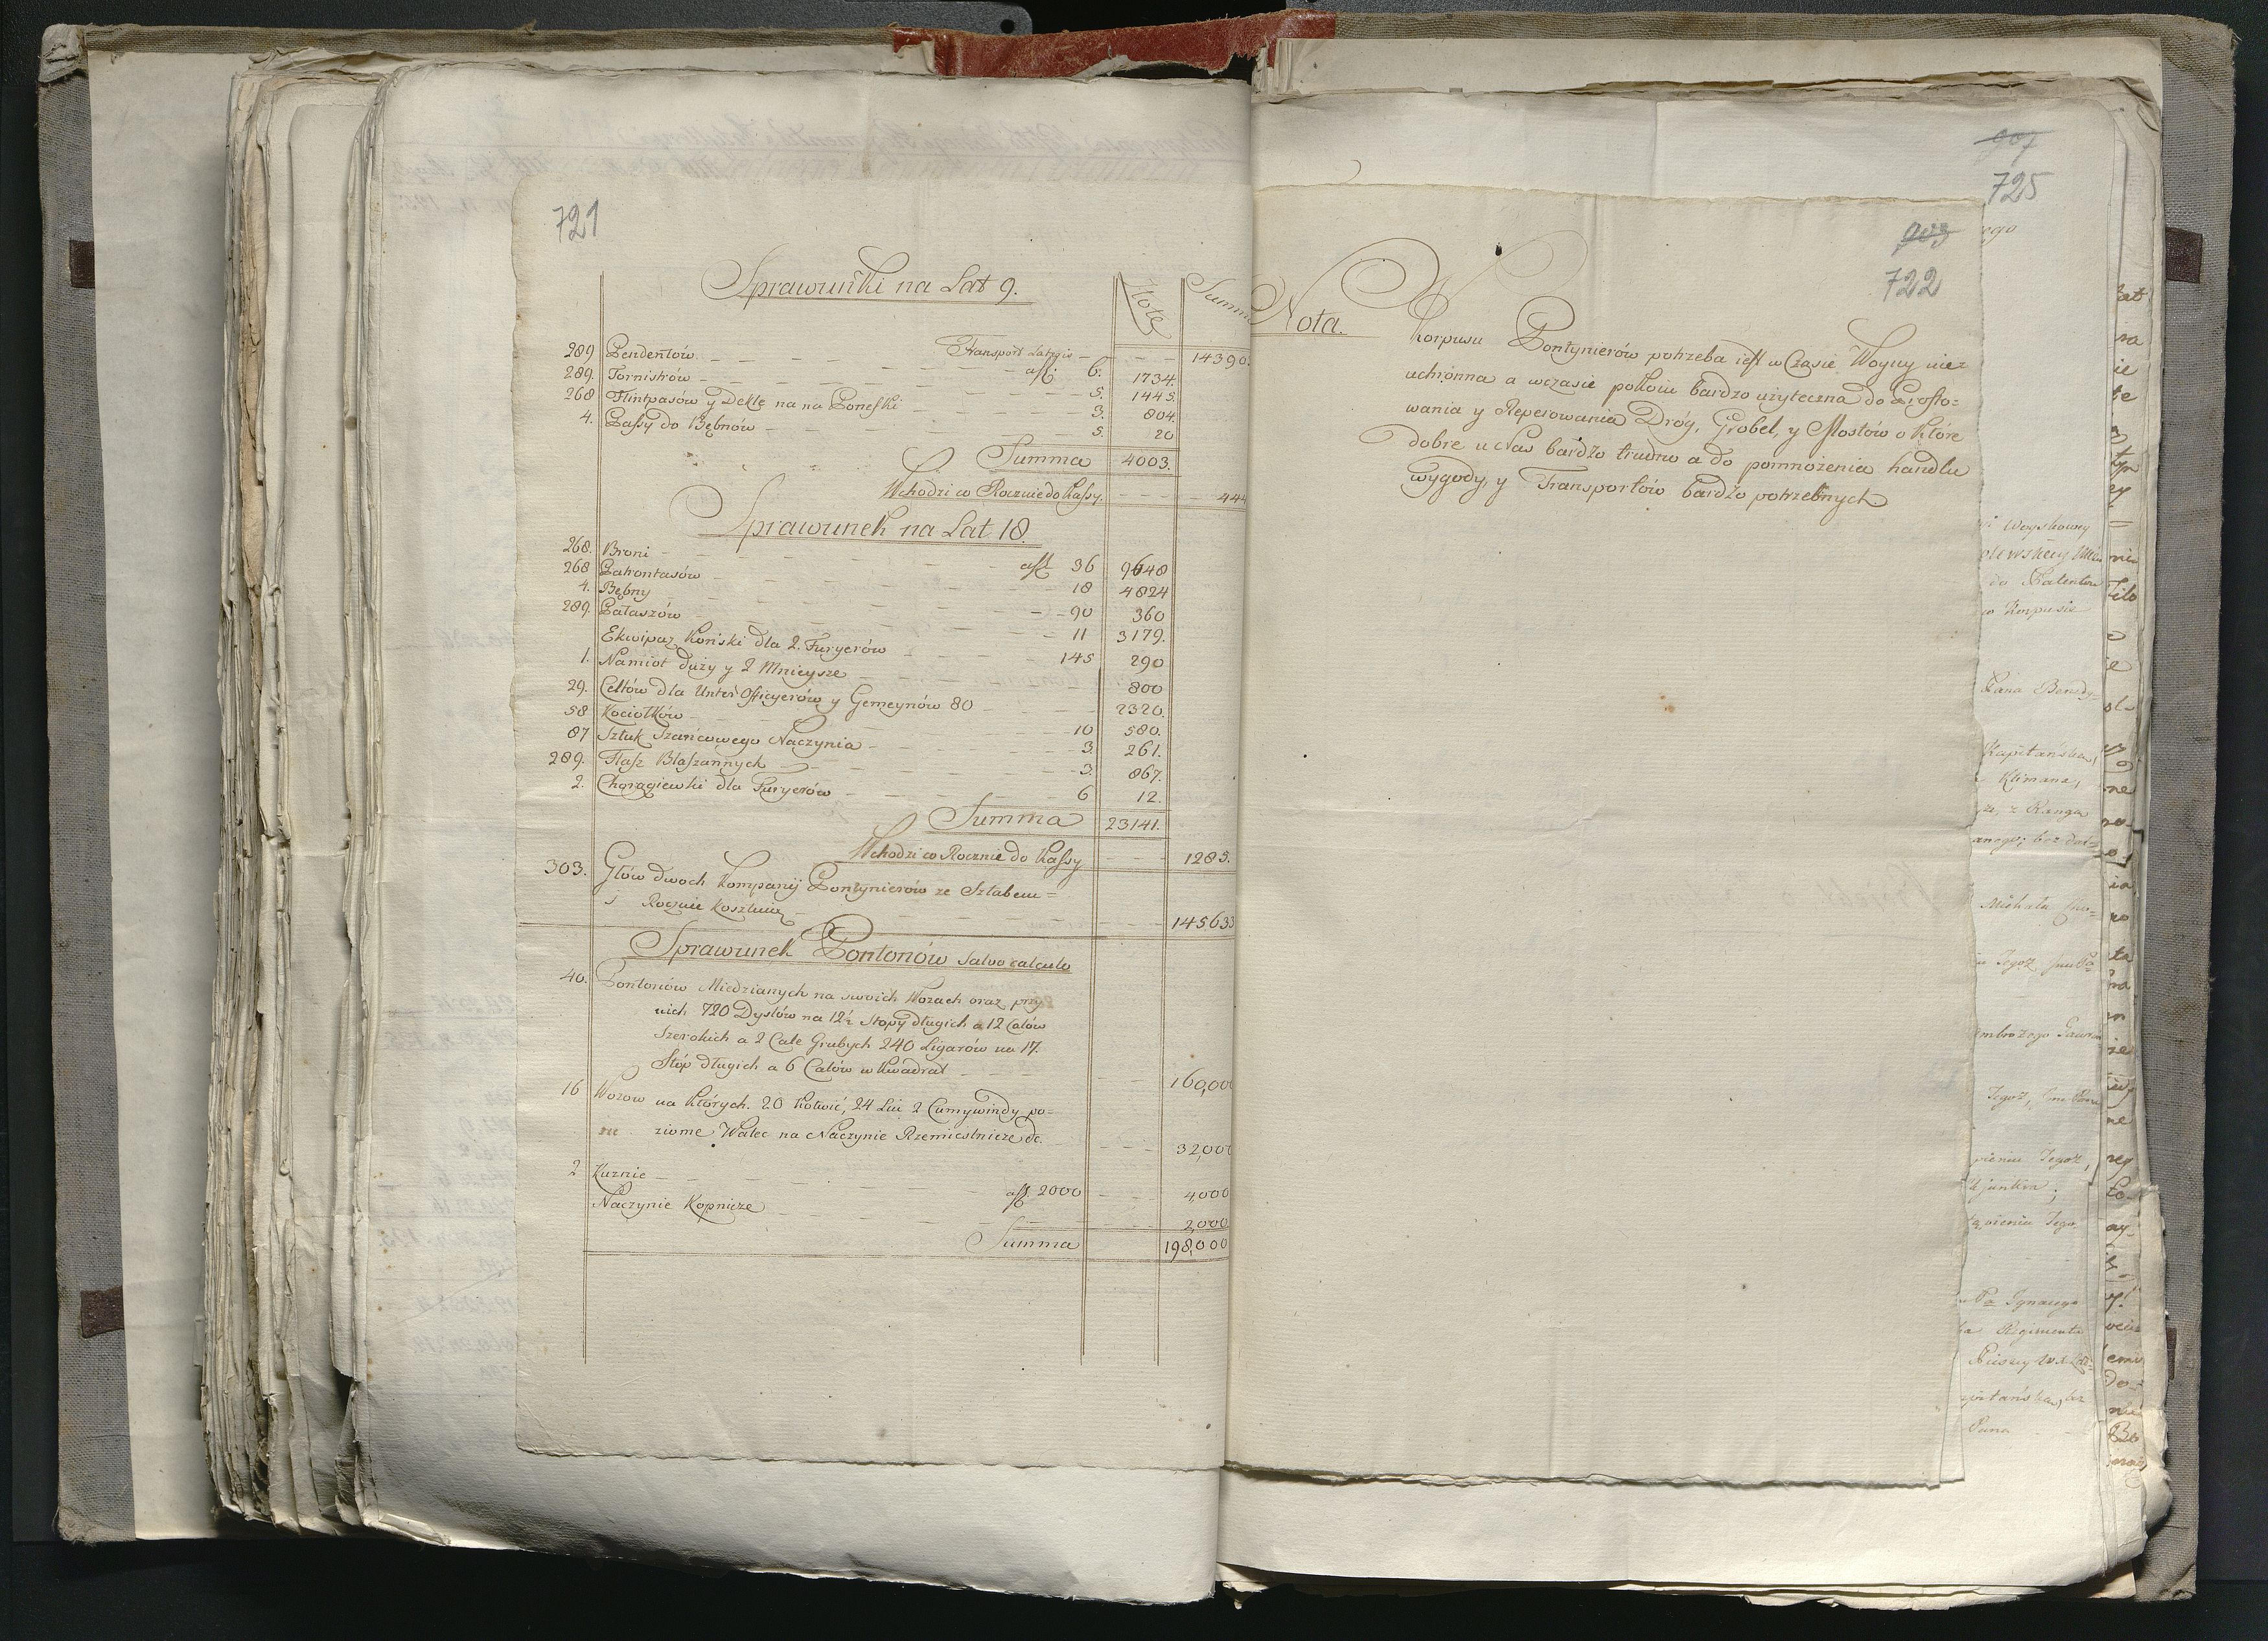 721
Sprawuńki na Lat 9.
Złote
Summa
Transport Lateris - - - 14390.
289 Pendentów - - - - aff: 6. 1734.
289. Tornistrów - - - - 5. 1445.
268 Flintpasów y Dekle na na Ponefki - - - 3. 804.
4. Passy do Bębnów - - - - 5. 20
Summa 4003.
Wchodzi co Rocznie do Kassy. - - - 444
Sprawunek na Lat 18.
268. Broni - - - - aff 36 9648
268 Patrontasów - - - - 18 4824
4. Bębny - - - - 90 360
289. Pałaszów - - - - 11 3179.
Ekwipaz Konski dla 2. Furyerów - - - 145 290
1. Namiot duży y 2 Mnieysze - - - 800
29. Celtów dla Unter Officyerów y Gemeynów 80 - - - 2320.
58 Kociołków - - - - 10 580.
87 Sztuk Szańcowego Naczynia - - - 3. 261.
289. Flasz Blaszannych - - - 3. 867.
2. Chorągiewki dla Furyerów - - - 6 12.
Summa 23141.
Wchodzi co Rocznie do Kassy - - - 1285.
303. Głów dwoch Kompanij Pontynierów ze Sztabem=
Rocznie Kosztuią - - - 145633
Sprawunek Pontonów salvo calculo
40. Pontonów Miedzianych na swoich Wozach oraz przy
nich 720 Dyslów na 12½ Stopy długich a 12 Calów
Szerokich a 2 Cale Grubych 240 Ligarów na 17.
Stóp długich a 6 Calów w Kwadrat - - - 160,000
16 Wozow na Których. 20 Kotwić, 24 Lin 2 Cumywindy po=
ziome Walec na Naczynie Rzemieslnicze &c. - - - 32,000
2 Kuznie - - - - aff. 2000 - - - 4,000
Naczynie Kopnicze - - - - 2,000
Summa 198,000
907
725
903
722
Nota.
Korpusu Pontynierów potrzeba iest w Czasie Woyny nie=
uchronna a wczasie pokoiu bardzo użyteczna do Prosto=
wania y Reperowania Dróg, Grobel, y Mostów o Które
dobre u Nas bardzo trudno a do pomnożenia handlu
wygody, y Transportów bardzo potrzebnych.
ego
Woyskowy
do Patentu
co Korpusie
Pana Bened=
Kapitanska,
Klimana,
z Ranga
Michała
Tegoż
Tegoż,
Tegoż,
Tego
Ignacego
Regimentu
Pana